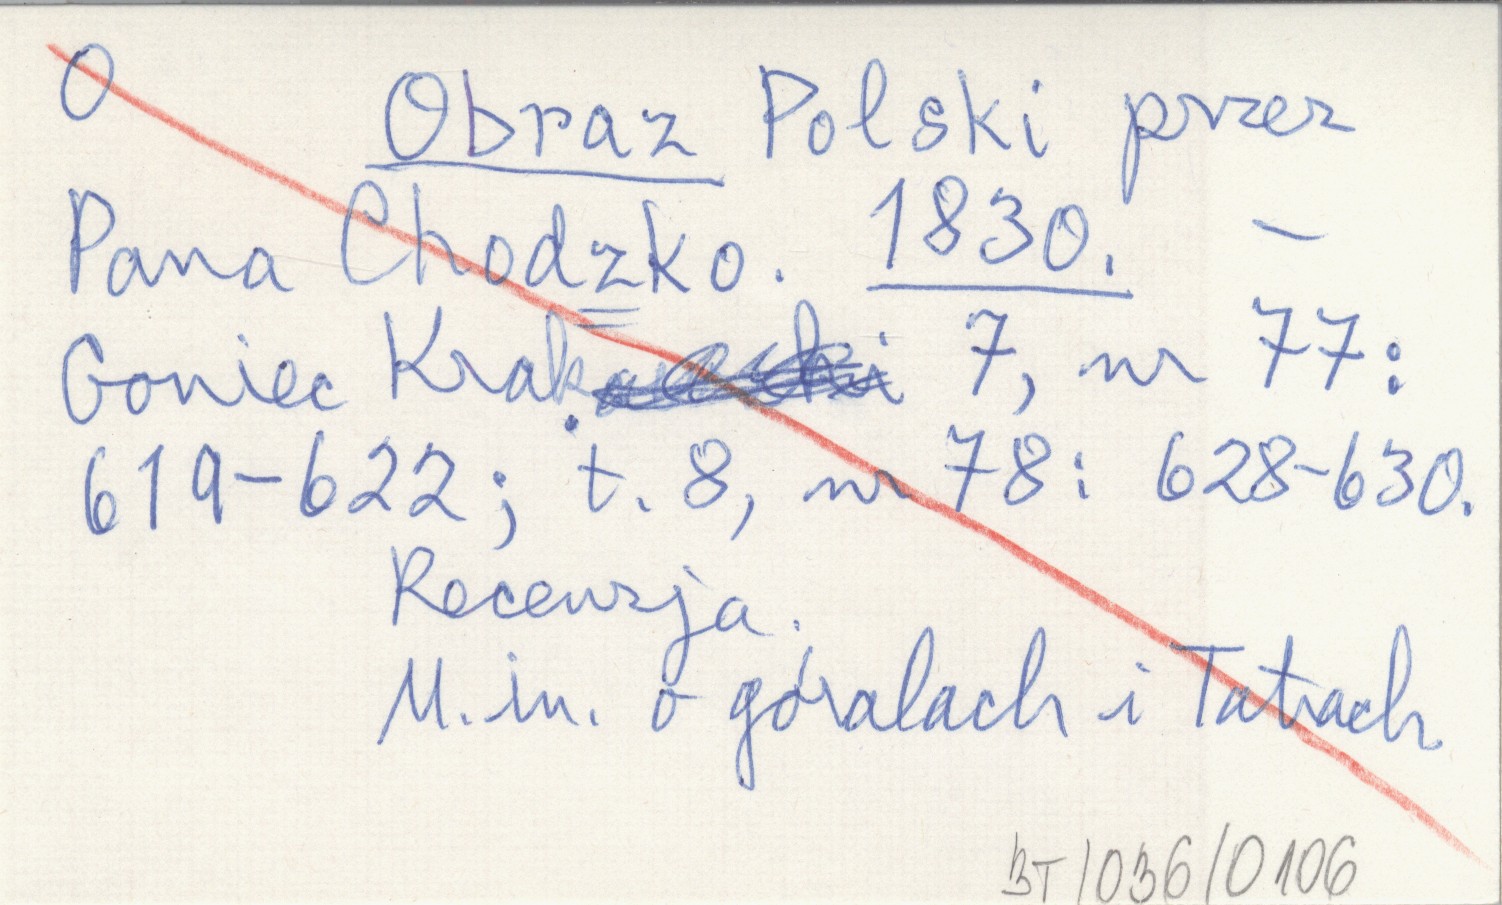 O
Obraz Polski przez
Pana Chodzko. 1830. –
Goniec Krak. 7, nr 77:
619-622; t. 8, nr 78: 628-630.
Recenzja.
M. in. o góralach i Tatrach
BT/036/0106